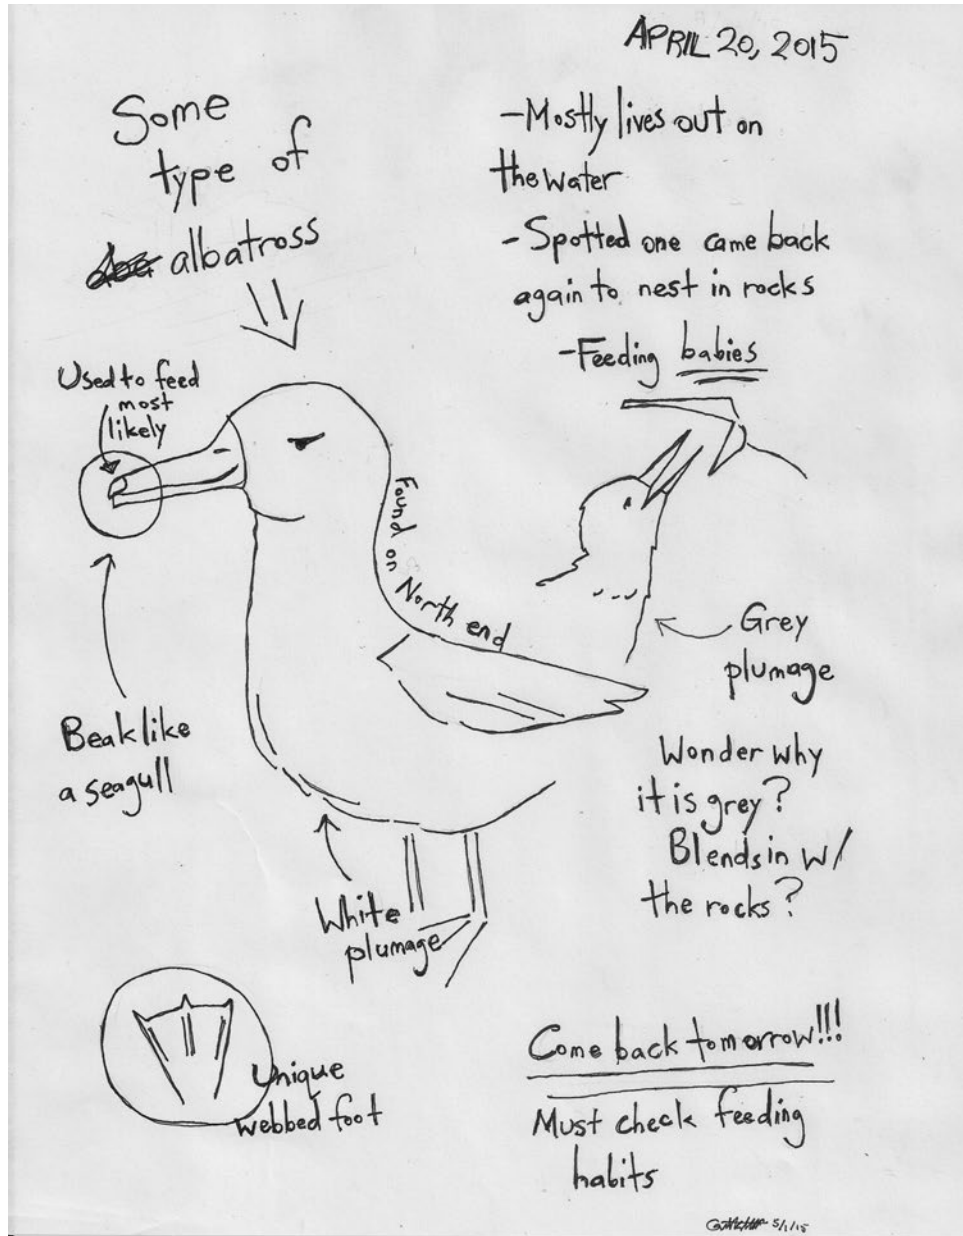 APRIL 20, 2015
Some
type of
albatross
-Mostly lives out on
the water
-Spotted one came back
again to nest in rocks
-Feeding babies
Used to feed
most
likely
Found on North end
Grey
plumage
Beak like
a seagull
Wonder why
it is grey?
Blends in w/
the rocks?
White
plumage
Unique
webbed foot
Come back tomorrow!!!
Must check feeding
habits
5/1/15